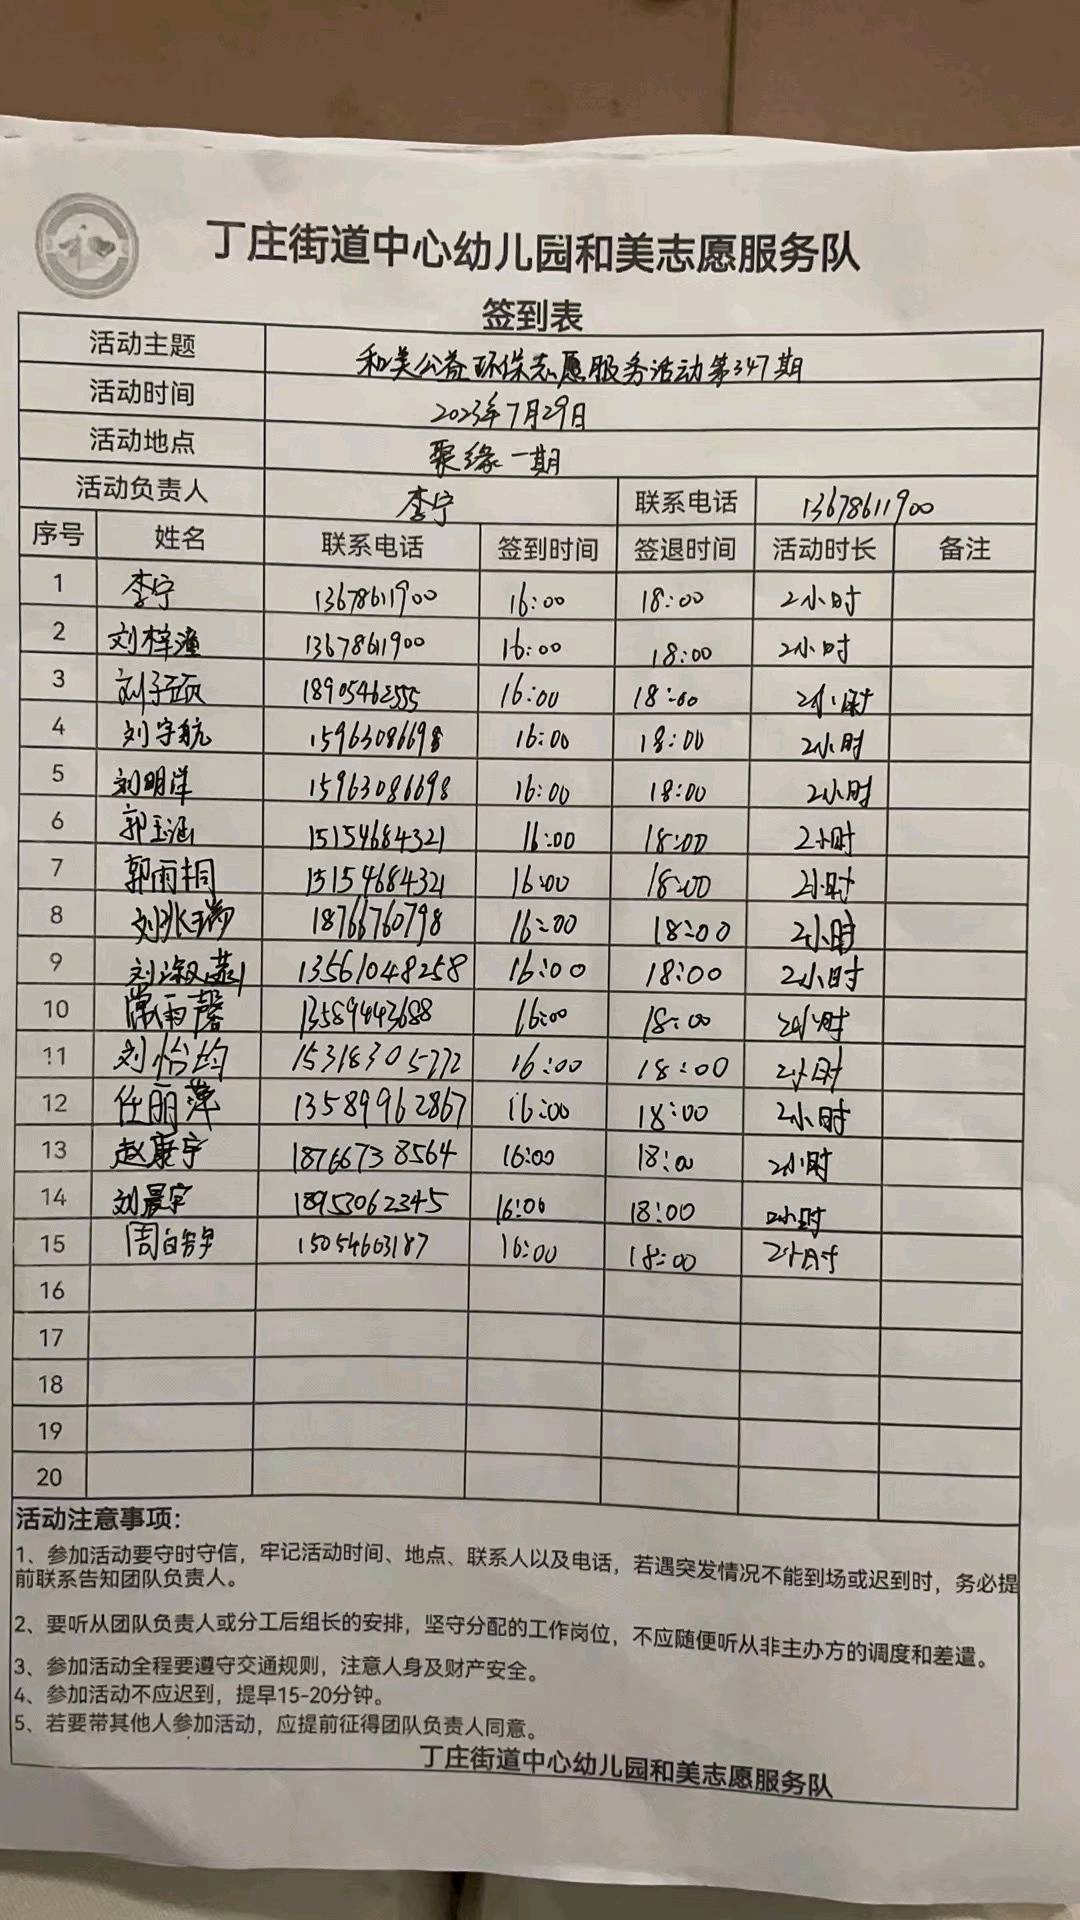 和
丁庄街道中心幼儿园和美志愿服务队
签到表
活动主题 和美公益环保志愿服务活动第347期
活动时间 2023年7月29日
活动地点 聚缘一期
活动负责人 李宁 联系电话 13678611900
序号 姓名 联系电话 签到时间 签退时间 活动时长 备注
1 李宁 13678611900 16:00 18:00 2小时
2 刘梓潼 13678611900 16:00 18:00 2小时
3 刘子硕 18905462555 16:00 18:00 2小时
4 刘宇航 15963086698 16:00 18:00 2小时
5 刘明洋 15963086698 16:00 18:00 2小时
6 郭玉涵 15154684321 16:00 18:00 2小时
7 郭雨桐 15154684321 16:00 18:00 2小时
8 刘张瑞 18766760798 16:00 18:00 2小时
9 刘淑 13561048258 16:00 18:00 2小时
10 常雨馨 13589443688 16:00 18:00 2小时
11 刘怡均 15318305772 16:00 18:00 2小时
12 任丽萍 13589962867 16:00 18:00 2小时
13 赵康宇 18766738564 16:00 18:00 2小时
14 刘晨宇 18953062345 16:00 18:00 2小时
15 周 15054663187 16:00 18:00 2小时
16
17
18
19
20
活动注意事项：
1、参加活动要守时守信，牢记活动时间、地点、联系人以及电话，若遇突发情况不能到场或迟到时，务必提
前联系告知团队负责人。
2、要听从团队负责人或分工后组长的安排，坚守分配的工作岗位，不应随便听从非主办方的调度和差遣。
3、参加活动全程要遵守交通规则，注意人身及财产安全。
4、参加活动不应迟到，提早15-20分钟。
5、若要带其他人参加活动，应提前征得团队负责人同意。
丁庄街道中心幼儿园和美志愿服务队